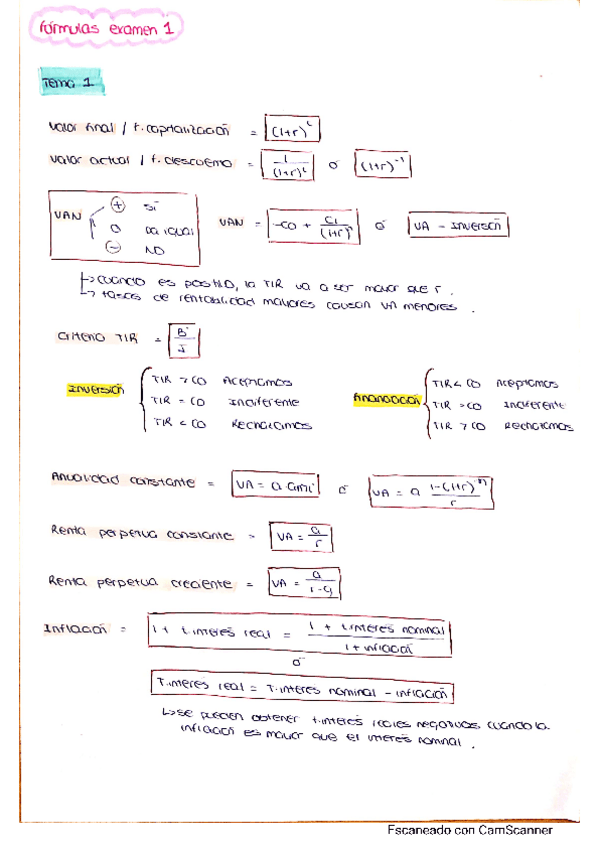 fórmulas examen 1
Tema 1
Valor final / f. capitalización = (1+r)^t
Valor actual / f. descuento = 1/(1+r)^t ó (1+r)^-1
VAN
+ SÍ
0 da igual
- NO
VAN = -C0 + C1/(1+r) ó VA - Inversión
↳ cuando es positivo, la TIR va a ser mayor que r.
↳ tasas de rentabilidad mayores causan VA menores.
Criterio TIR = B/I
Inversión
TIR > CO Aceptamos
TIR = CO Indiferente
TIR < CO Rechazamos
Financiación
TIR < CO Aceptamos
TIR = CO Indiferente
TIR > CO Rechazamos
Anualidad constante = VA = a · ó VA = a 1-(1+r)^-n / r
Renta perpetua constante = VA = a/r
Renta perpetua creciente = VA = a/1-g
Inflación = 1 + t.interés real = 1 + t.interés nominal / 1 + inflación
ó
T.interés real = T.interés nominal - inflación
↳ se pueden obtener t.interés reales negativos cuando la
inflación es mayor que el interés nominal.
Escaneado con CamScanner